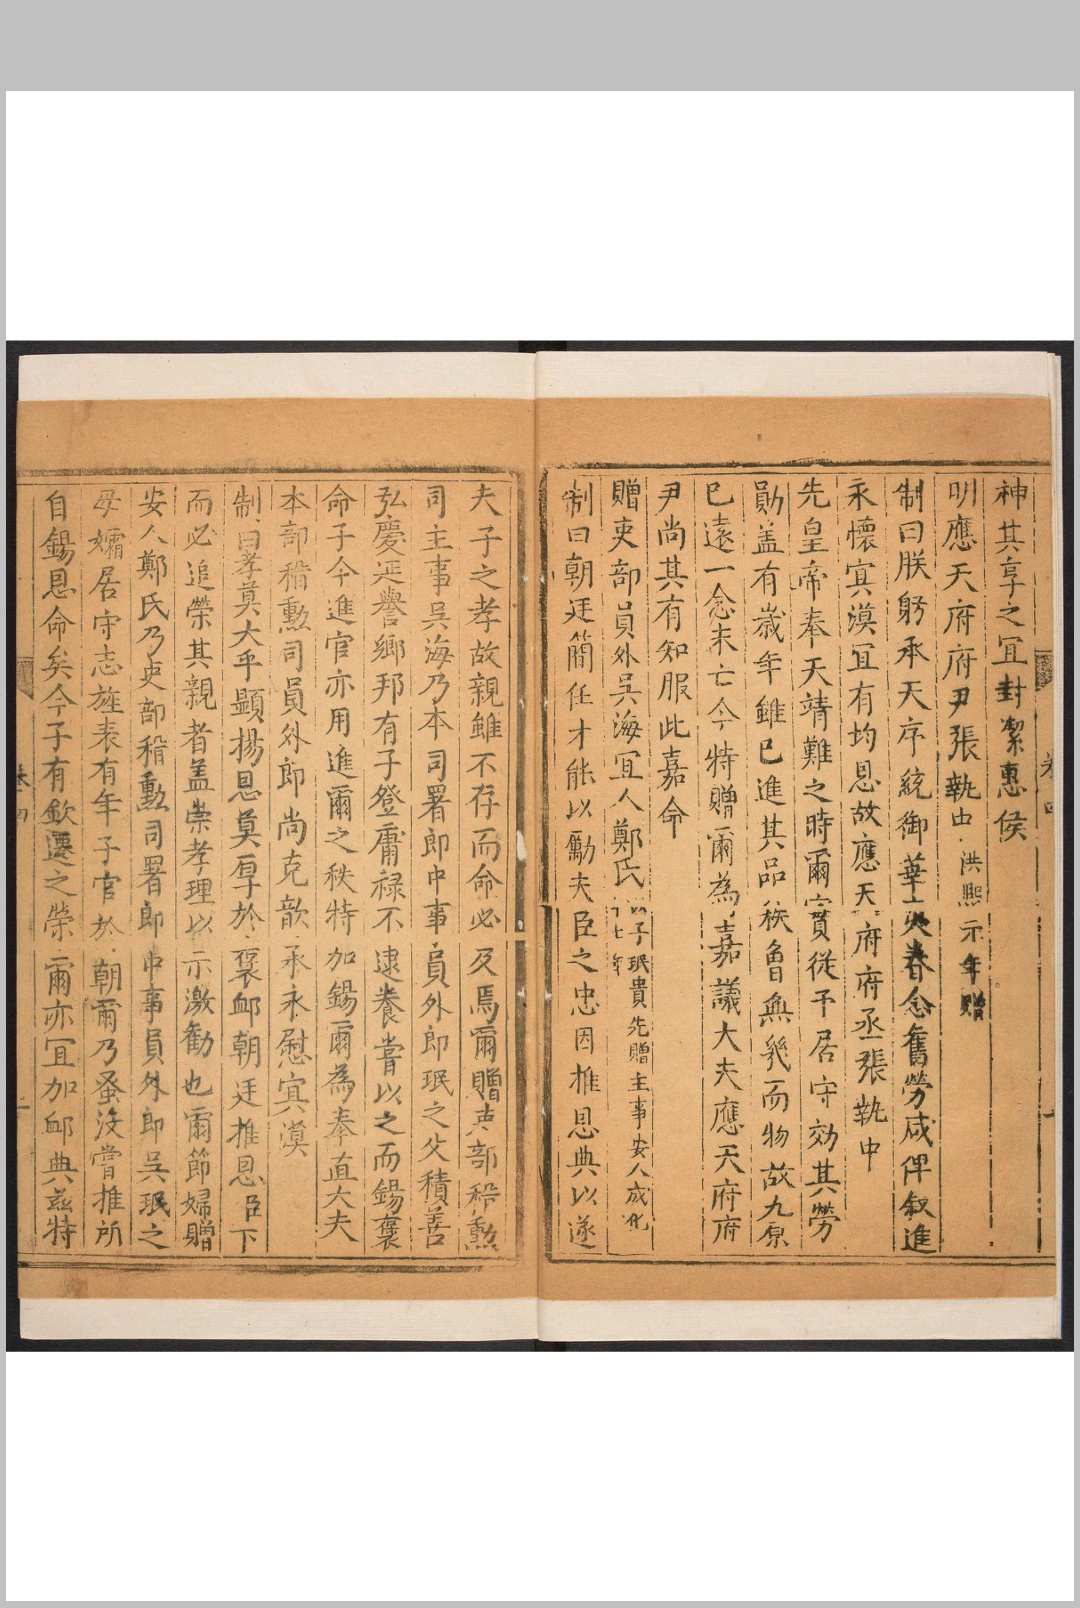 神其享之宜封潔惠侯
明應天府府尹張執中 洪熙元年贈
制曰朕躬承天序統御華夷眷念舊勞咸俾敘進
永懷㝠漠宜有均恩故應天府府丞張執中
先皇帝奉天靖難之時爾實從予居守効其勞
勛盖有歲年雖已進其品秩曾無幾而物故九原
已遠一念未亡今特贈爾為嘉議大夫應天府府
尹尚其有知服此嘉命
贈吏部員外吳海宜人鄭氏 以子珉貴先贈主事安人成化
十七年
制曰朝廷簡任才能以勵夫臣之忠因推恩典以遂
夫子之孝故親雖不存而命必及焉爾贈吏部稽勲
司主事吳海乃本司署郎中事員外郎珉之父積善
弘慶延譽鄉邦有子登庸祿不逮養嘗以之而錫褒
命子今進官亦用進爾之秩特加錫爾為奉直大夫
本部稽勲司員外郎尚克歆承永慰㝠漠
制曰孝莫大乎顯揚恩莫厚於褒卹朝廷推恩臣下
而必追榮其親者盖崇孝理以示激勸也爾節婦贈
安人鄭氏乃吏部稽勳司署郎中事員外郎吳珉之
母孀居守志旌表有年子官於朝爾乃蚤沒嘗推所
自錫恩命矣今子有欽遷之榮爾亦宜加卹典兹特
卷四
卷四